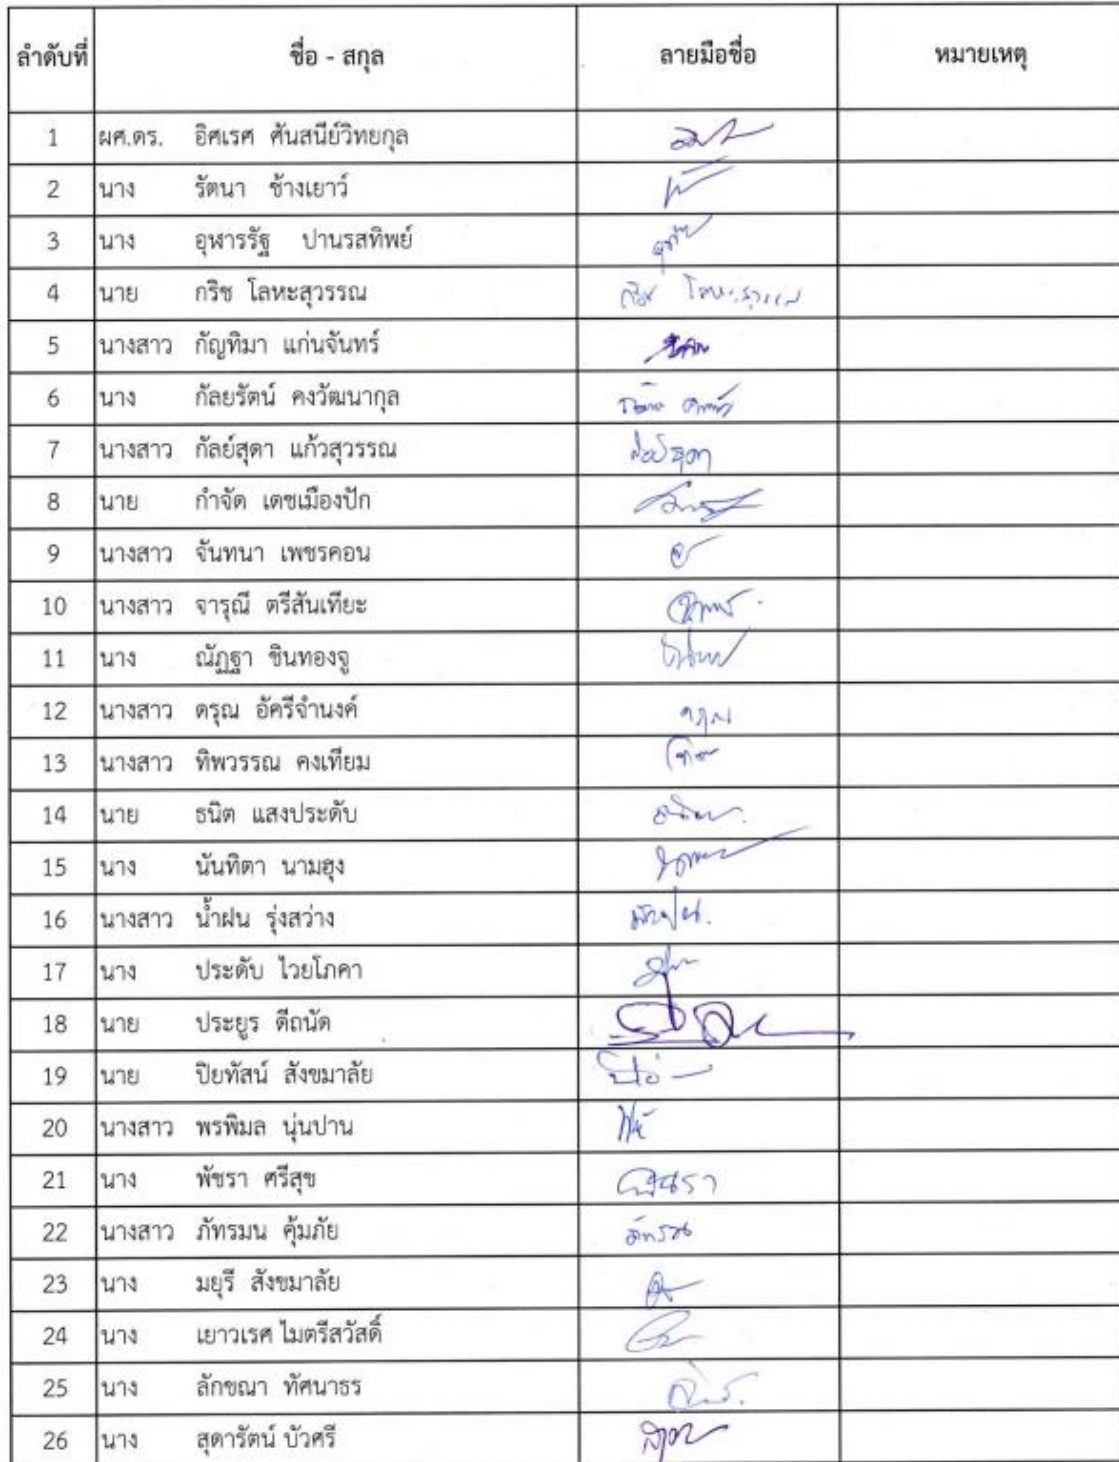 ลำดับที่ ชื่อ - สกุล ลายมือชื่อ หมายเหตุ
1 ผศ.ดร. อิศเรศ ศันสนีย์วิทยกุล
2 นาง รัตนา ช้างเยาว์
3 นาง อุฬารรัฐ ปานรสทิพย์
4 นาย กริช โลหะสุวรรณ กริช โลหะสุวรรณ
5 นางสาว กัญทิมา แก่นจันทร์
6 นาง กัลยรัตน์ คงวัฒนากุล
7 นางสาว กัลย์สุดา แก้วสุวรรณ
8 นาย กำจัด เดชเมืองปัก
9 นางสาว จันทนา เพชรคอน
10 นางสาว จารุณี ตรีสันเทียะ
11 นาง ณัฏฐา ชินทองจู
12 นางสาว ดรุณ อัครีจำนงค์ ดรุณ
13 นางสาว ทิพวรรณ คงเทียม
14 นาย ธนิต แสงประดับ
15 นาง นันทิตา นามฮุง
16 นางสาว น้ำฝน รุ่งสว่าง น้ำฝน
17 นาง ประดับ ไวยโภคา
18 นาย ประยูร ดีถนัด
19 นาย ปิยทัสน์ สังขมาลัย
20 นางสาว พรพิมล นุ่นปาน
21 นาง พัชรา ศรีสุข พัชรา
22 นางสาว ภัทรมน คุ้มภัย ภัทรมน
23 นาง มยุรี สังขมาลัย
24 นาง เยาวเรศ ไมตรีสวัสดิ์
25 นาง ลักขณา ทัศนาธร
26 นาง สุดารัตน์ บัวศรี